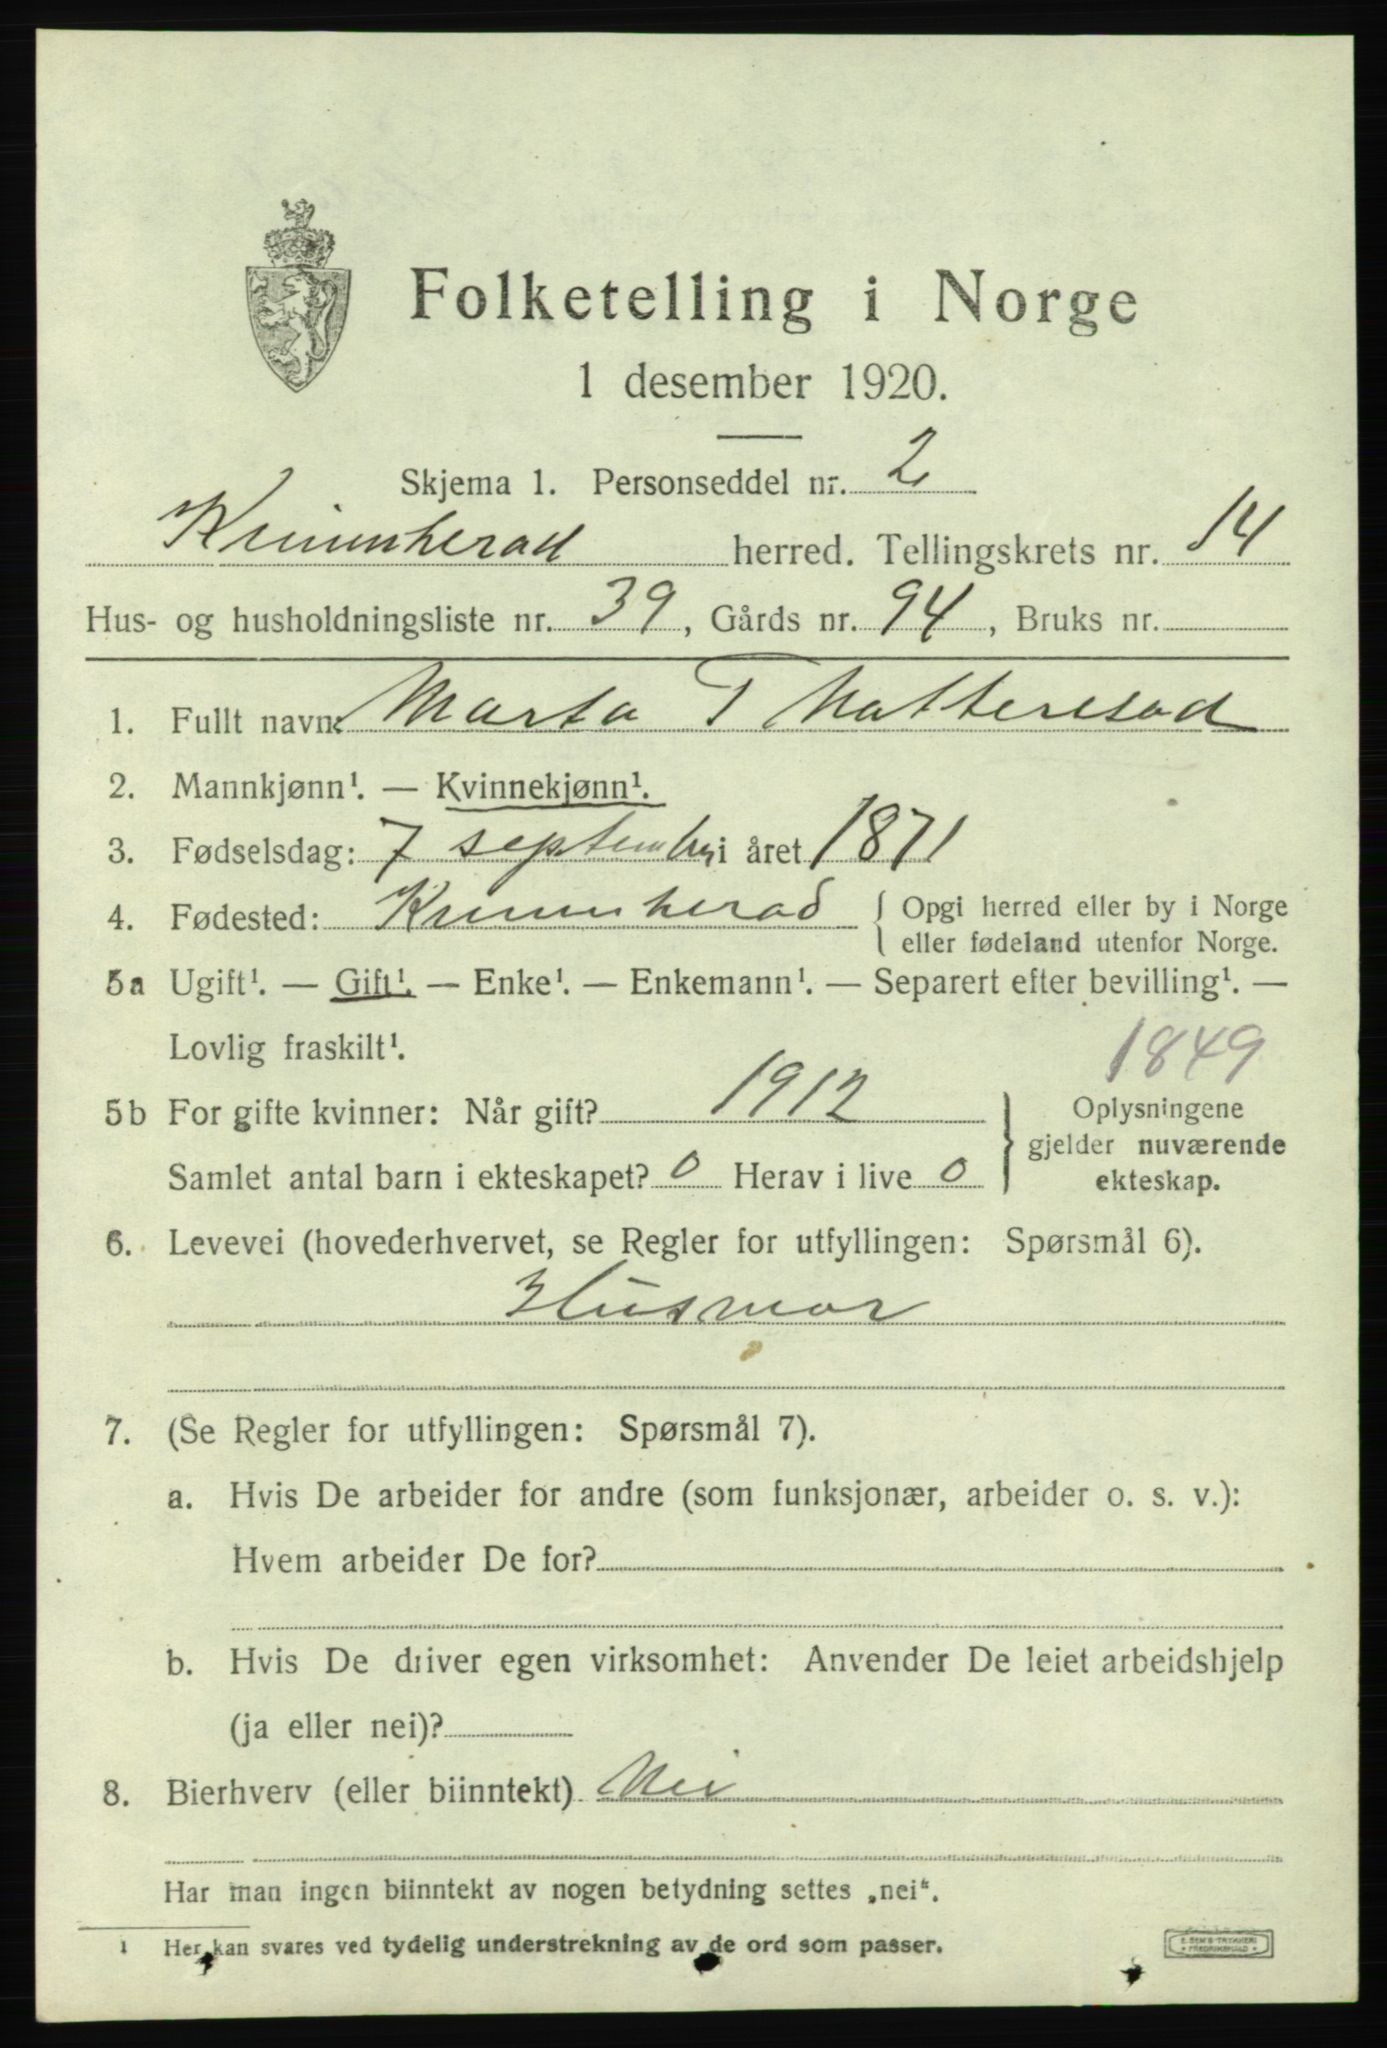 Folketelling i Norge
1 desember 1920.
Skjema 1. Personseddel nr. 2
Kvinnherad herred. Tellingskrets nr. 14
Hus- og husholdningsliste nr. 39, Gårds nr. 94, Bruks nr.
1. Fullt navn: Marta T
2. Mannkjønn¹. — Kvinnekjønn¹.
3. Fødselsdag: 7 september i året 1871
4. Fødested: Kvinnherad { Opgi herred eller by i Norge
eller fødeland utenfor Norge.
5a Ugift¹. — Gift¹. — Enke¹. — Enkemann¹. — Separert efter bevilling¹. —
Lovlig fraskilt¹.
1849
5b For gifte kvinner: Når gift? 1912
Samlet antal barn i ekteskapet? 0 Herav i live 0
} Oplysningene
gjelder nuværende
ekteskap.
6. Levevei (hovederhvervet, se Regler for utfyllingen: Spørsmål 6).
Husmor
7. (Se Regler for utfyllingen: Spørsmål 7).
a. Hvis De arbeider for andre (som funksjonær, arbeider o. s. v.):
Hvem arbeider De for?
b. Hvis De driver egen virksomhet: Anvender De leiet arbeidshjelp
(ja eller nei)?
8. Bierhverv (eller biinntekt) Nei
Har man ingen biinntekt av nogen betydning settes „nei".
1 Her kan svares ved tydelig understrekning av de ord som passer.